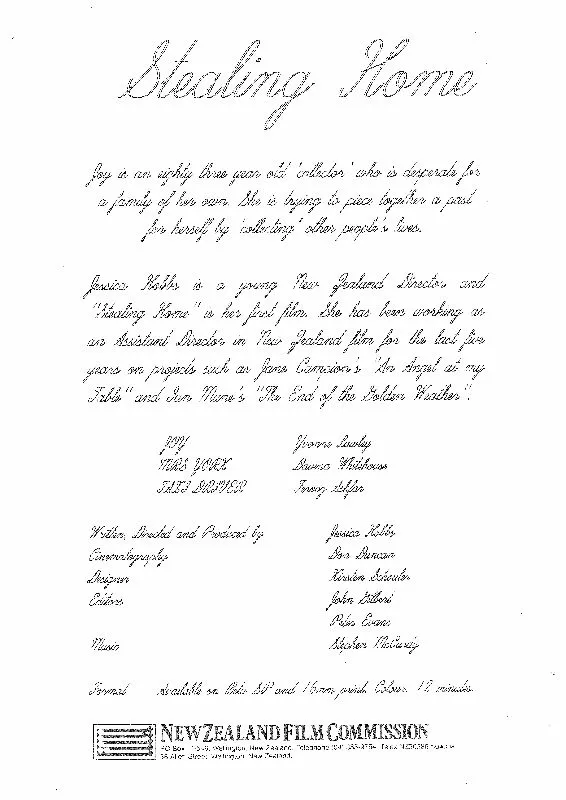 Stealing Home
Joy is an eighty three year old 'collector' who is desperate for
a family of her own. She is trying to piece together a past
for herself by 'collecting' other people's lives.
Jessica Hobbs is a young New Zealand Director and
"Stealing Home" is her first film. She has been working as
an Assistant Director in New Zealand film for the last five
years on projects such as Jane Campion's "An Angel at my
Table" and Ian Mune's "The End of the Golden Weather".
JOY Yvonne Lawley
MRS YORK Davina Whitehouse
TAXI DRIVER
Written, Directed and Produced by Jessica Hobbs
Cinematography Don Duncan
Designer Kirsten Shouler
Editors John Gilbert
Peter Evans
Music Stephen McCurdy
Format Available on Beta SP and 16mm print. Colour. 12 minutes.
NEW ZEALAND FILM COMMISSION
PO Box Wellington, New Zealand. Telephone
Street, Wellington, New Zealand.